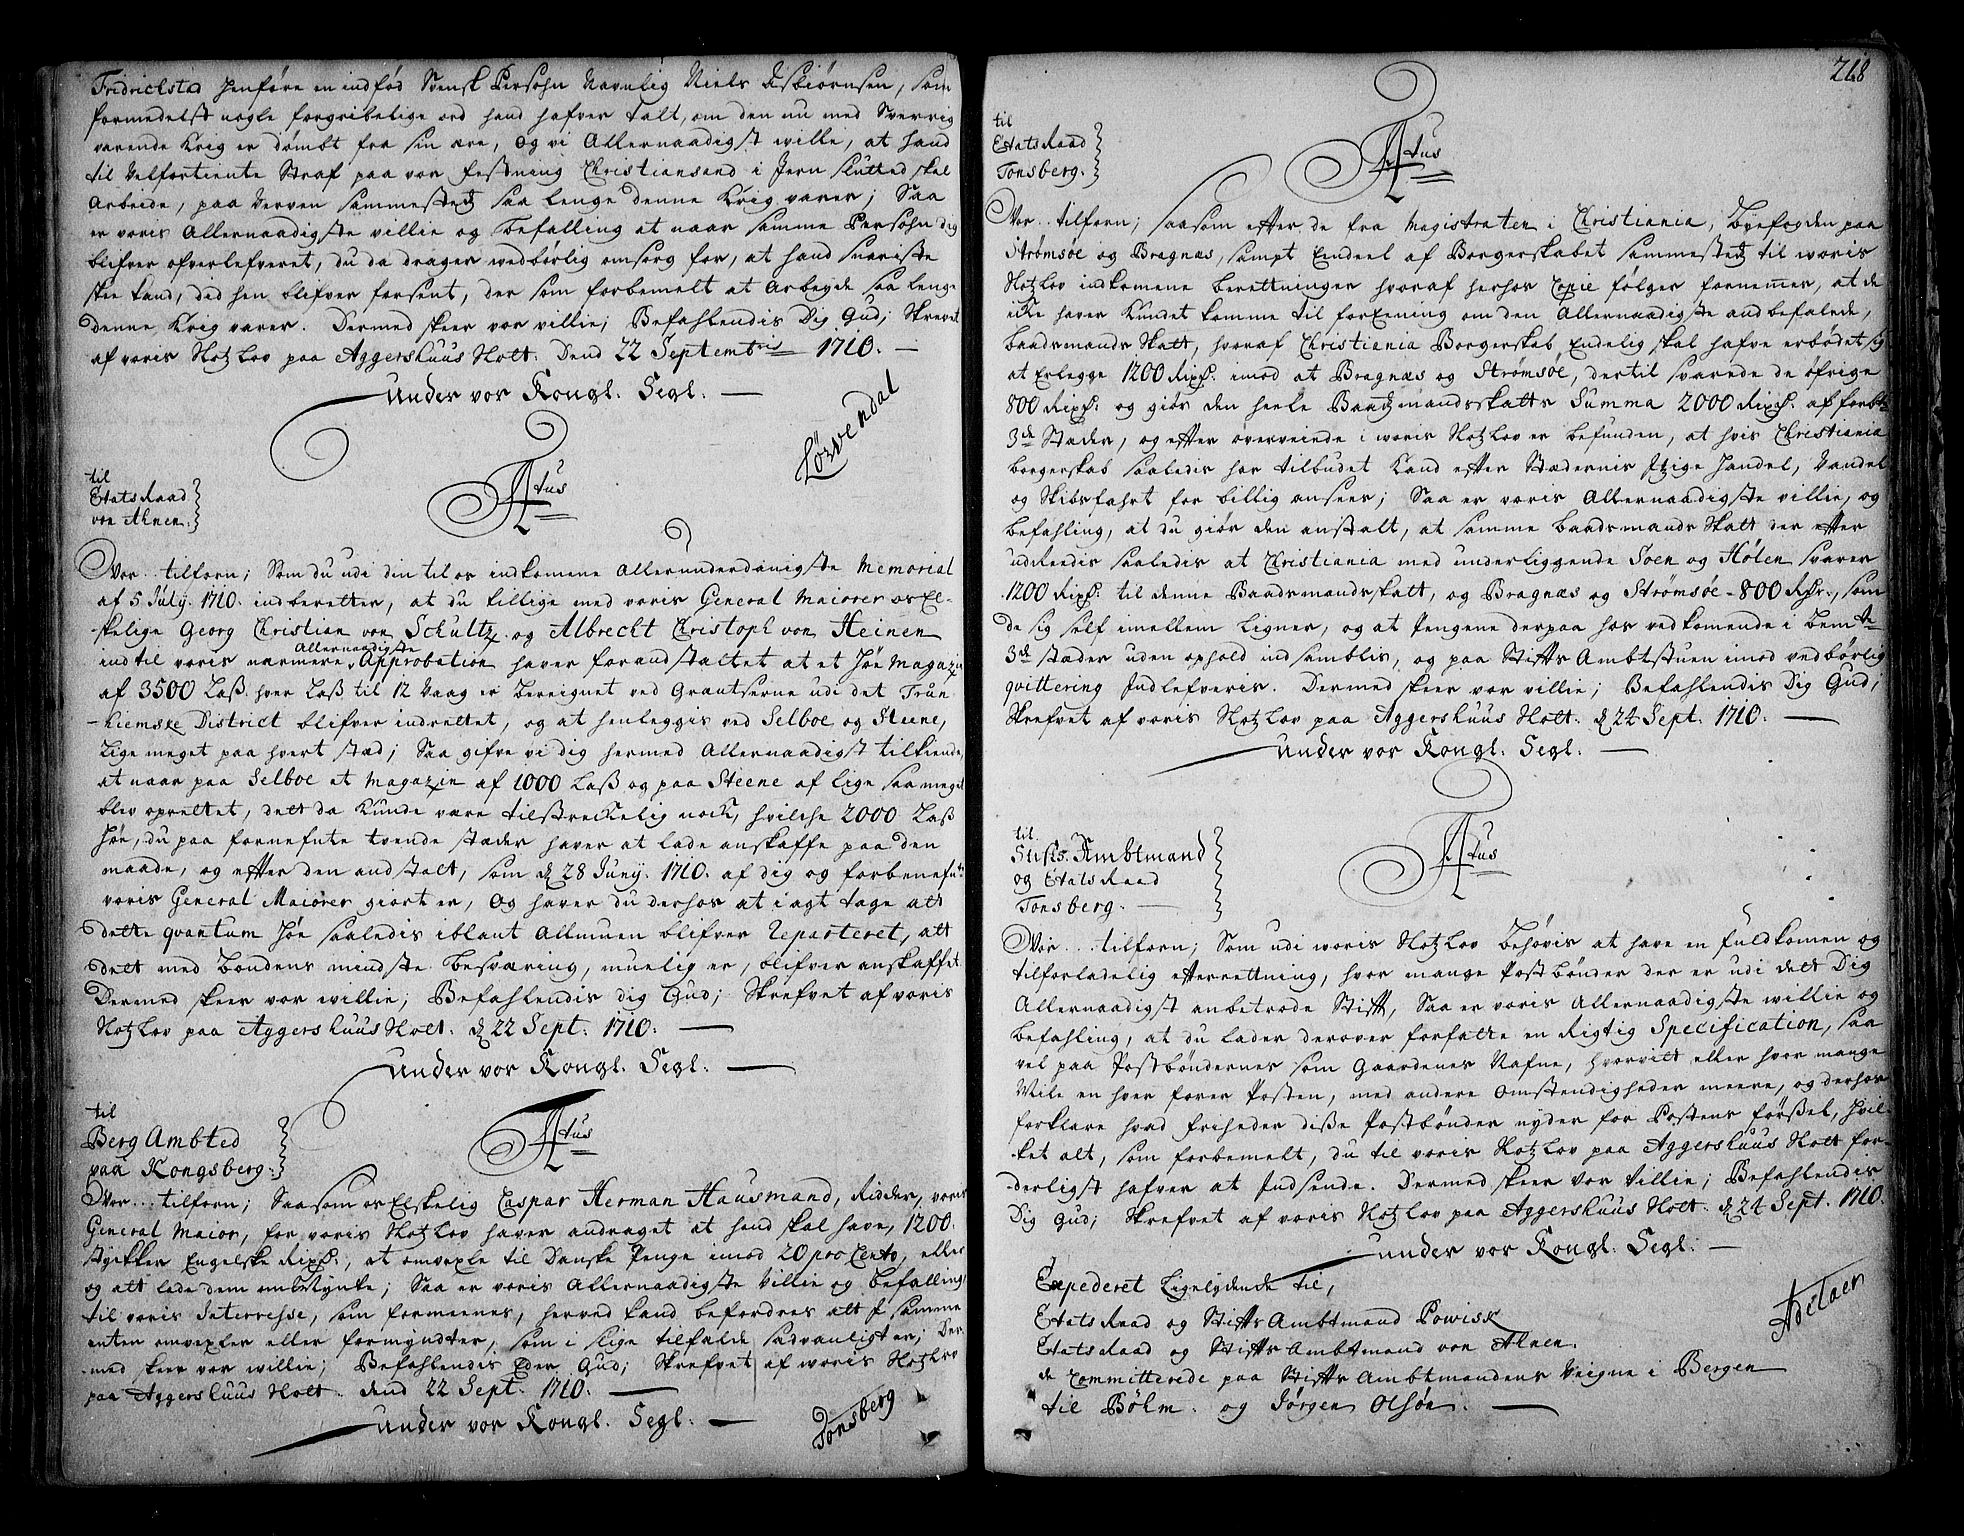 Fridrichstad henføre en indfød Svensk Persohn Navnlig Niels Asbiørnsen, som
formedelst nogle forgribelige ord hand hafver talt, om den nu med Sverrig
varende Krig er dømbt fra sin ære, og vi Allernaadigst wille, at hand
til velfortiente Straf paa vor festning Christiansand i Jern slutted skal
Arbeide, paa Verven sammestedtz saa lenge denne Krig varer; Saa
er voris Allernaadigste villie og befalling at naar samme Persohn dig
blifver ofverlefveret, du da drager wedbørlig omsorg for, at hand snariste
skee kand, did hen blifver forsent, der som forbemelt at Arbeyde saa lenge
denne Krig varer. Dermed skeer vor villie; Befahlendis Dig Gud; Skrevet
af voris Slotzlov paa Aggershuus Slott. Dend 22 Septembris 1710. —
Under vor Kongl. Segl. —
Løvendal
til
Etats Raad
von Ahnen.
Atus
Vor.. tilforn; Som du udi din til os indkomene Allerunderdanigste Memorial
af 5 July. 1710. indberetter, at du tillige med voris General Maiorer os El-
skelige Georg Christian von Schultz og Albrecht Christoph von Heinen
indtil voris nærmere Allernaadigste Approbation haver foranstaltet at et Høe Magazin
af 3500 Laß. hver Laß til 12 Vaag er bereignet ved Grændtserne udi det Trun-
hiemske District blifver indrettet, og at henleggis ved Selboe og Steene,
lige meget paa hvert stæd; Saa gifve vi dig hermed Allernaadigst tilkiende,
at naar paa Selboe et Magazin af 1000 Laß og paa Steene af lige saa meget
blev oprettet, dett da kunde være tilstreckelig nock, hvilche 2000 Laß
Høe, du paa fornefnte tvende stæder haver at lade anskaffe paa den
maade, og efter den anstalt, som d 28 Juny. 1710. af dig og forbenefnte
voris General Maiorer giort er, Og haver du derhos at i agt tage att
dette qvantum Høe saaledis iblant Allmuen blifver Reparteret, att
dett med Bondens mindste besværing, muelig er, blifver anskaffet.
Dermed skeer vor willie; Befahlendis dig Gud; Skrefvet af voris
Slotzlov paa Aggershuus Slott. d 22 Sept. 1710. —
Under vor Kongl. Segl. —
til
Berg Ambted
paa Kongsberg.
Atus
Vor... tilforn; Saasom os Elskelig Caspar Herman Hausmand, Ridder, voris
General Maior, for voris Slotzlov haver andraget at hand skal have, 1200.
stycker Engelske Rixdr., at omvexle til Danske Penge imod 20 pro Cento, eller
og att lade dem ombmynte; Saa er voris Allernaadigste Villie og befalling
til voris Interresse, som formeenes, herved kand befordres att I samme
enten omvexler eller formyndter, som i slige tilfalde sædvanligt er; Der
med skeer vor willie; Befahlendis Eder Gud; Skrefvet af woris Slotzlov
paa Aggershuus Slott. dend 22 Sept. 1710. —
Under vor Kongl. Segl. —
Tonsberg
218
til
Etats Raad
Tonsberg.
Atus
Vor.. tilforn; saasom efter de fra Magistraten i Christiania, Byefogden paa
Strømsøe og Bragnæs, sampt Endeel af Borgerskabet sammestedz til woris
Slotzlov indkomene berettninger hvoraf herhos Copie følger fornemmer, at de
icke haver kundet komme til forEening om den Allernaadigste anbefalede,
baadsmands Skatt, hvoraf Christiania Borgerskab Endelig skal hafve erbødet sig
at Erlegge 1200 Rixdr. imod at Bragnæs og Strømsøe, dertil svarede de øfrige
800 Rixdr. og giør den heele Baadzmandsskatts Summa 2000 Rixdr. af forbte
3de Stæder, og efter overveiende i woris Slotzlov er befunden, at hvis Christiania
borgerskab saaledis har tilbudet kand efter Stædernis Itzige Handel, Vandel
og Skibsfahrt for billig ansees; Saa er voris Allernaadigste villie, og
befahling, at du giør den anstalt, at samme baadsmands Skatt der efter
udreedis saaledis at Christiania med underliggende Soen og Hølen svarer
1200 Rixdr. til denne Baadsmandsskatt, og Bragnæs og Strømsøe - 800 Rdr., som
de sig self imellem ligner, og at Pengene derpaa hos vedkomende i bemte
3de stæder uden ophold indsamblis, og paa Stifts Ambtstuen imod vedbørlig
qvittering Indlefveris. Dermed skeer vor villie; Befahlendis Dig Gud;
Skrefvet af voris Slotzlov paa Aggershuus Slott. d 24 Sept. 1710. —
Under vor Kongl. Segl. —
til
Stifts. Ambtmand
og Etats Raad
Tonsberg. —
Atus
Vor... tilforn; Som udi woris Slotzlov behøvis at have en fuldkomen og
tilforladelig efterrettning, hvor mange Postbønder der er udi dett Dig
Allernaadigst anbetroede Stift, Saa er voris Allernaadigste willie og
befahling, at du lader derover forfatte en Rigtig Specification, saa
vel paa Postbøndernes som Gaardenes Nafne, hvorvitt eller hvor mange
Mile en hver fører Posten, med andere omstendigheder meere, og derhos
forklare hvad friheder disse Postbønder nyder for Postens førssel, hvil-
ket alt, som forbemelt, du til voris Slotzlov paa Aggershuus Slott for-
derligst hafver at Indsende. Dermed skeer vor villie; Befahlendis
Dig Gud; Skrefvet af voris Slotzlov paa Aggershuus Slott. d 24 Sept. 1710.
Under vor Kongl. Segl. —
Expederet Ligelydende til,
Etats Raad og Stifts Ambtmand Powisk
Etats Raad og Stifts Ambtmand von Ahnen.
de Committerede paa Stifts Ambtmandens Veigne i Bergen
til Bøhm. og Jørgen Olsøn. —
Adelaer